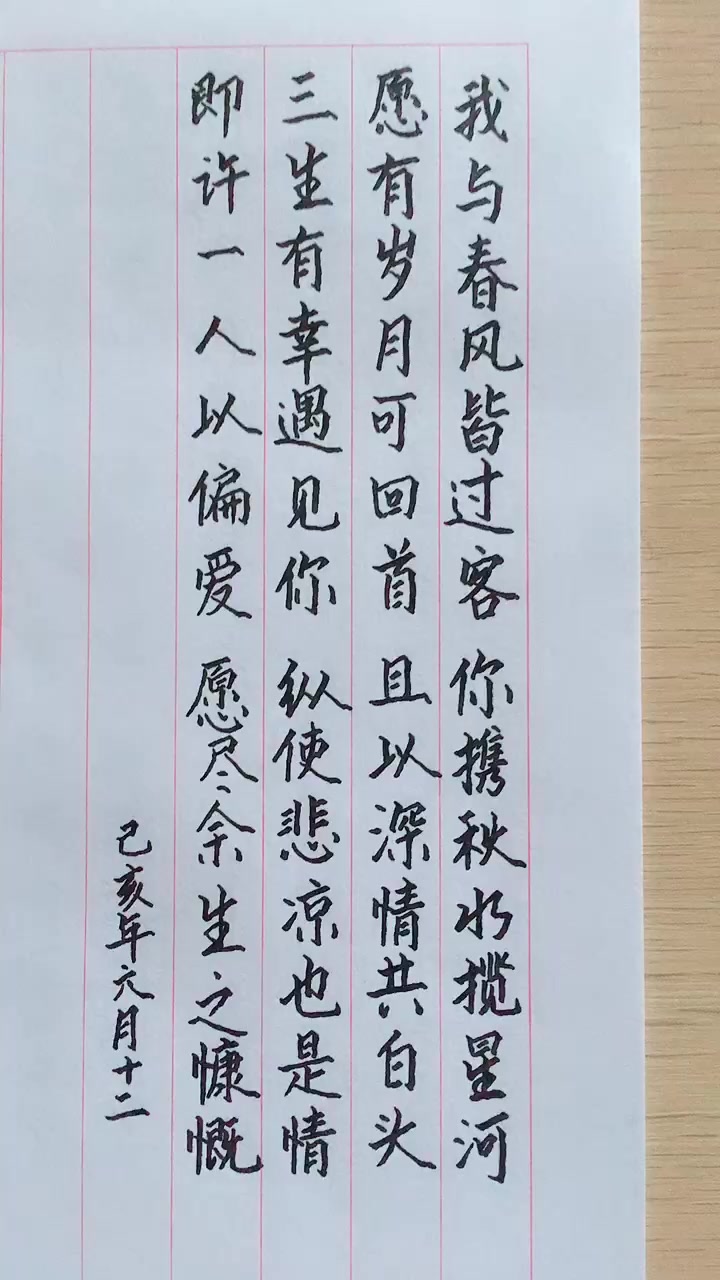 我与春风皆过客 你携秋水揽星河
愿有岁月可回首 且以深情共白头
三生有幸遇见你 纵使悲凉也是情
即许一人以偏爱 愿尽余生之慷慨
己亥年六月十二